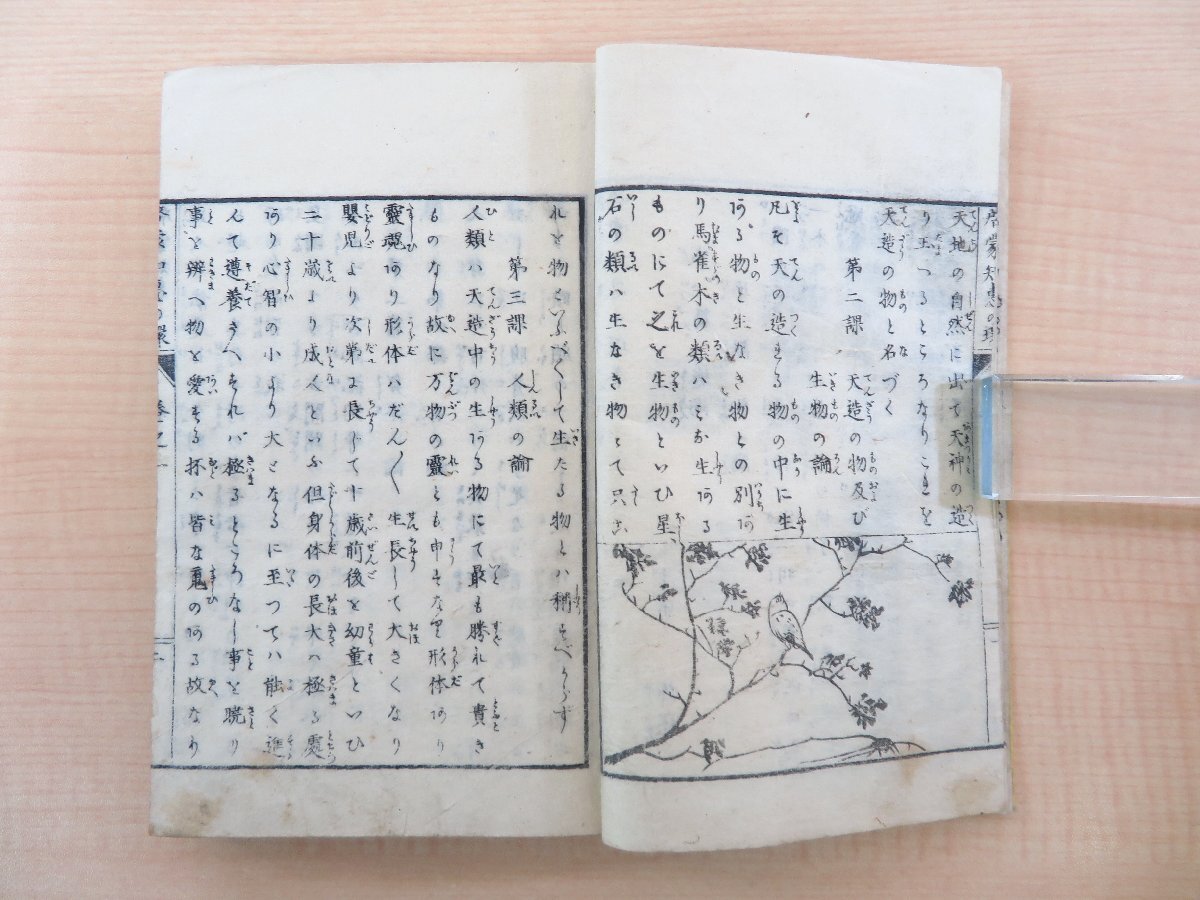 啓蒙知恵の環
天地の自然に出て天神の造
り玉へるところなりこれを
天造の物と名づく
第二課 天造の物及び
生物の論
凡そ天の造れる物の中に生
ある物と生なき物との別あ
り馬雀木の類ハミな生ある
ものにて之を生物といひ星
石の類ハ生なき物とて只こ
れを物といふべくして生たる物とハ稱すべからず
第三課 人類の論
人類ハ天造中の生ある物にて最も勝れて貴き
ものなり故に万物の靈とも申すなり形体あり
靈魂あり形体ハだん〱生長して大きくなり
嬰児より次第に長じて十歳前後を幼童といひ
二十歳より成人といふ但身体の長大ハ極る處
あり心智の小より大となるに至つてハ能く進
んで遵養さへすれバ極るところなし事を暁り
事を辨へ物を愛する抔ハ皆な䰟の有る故なり
啓蒙知恵の環 巻之一